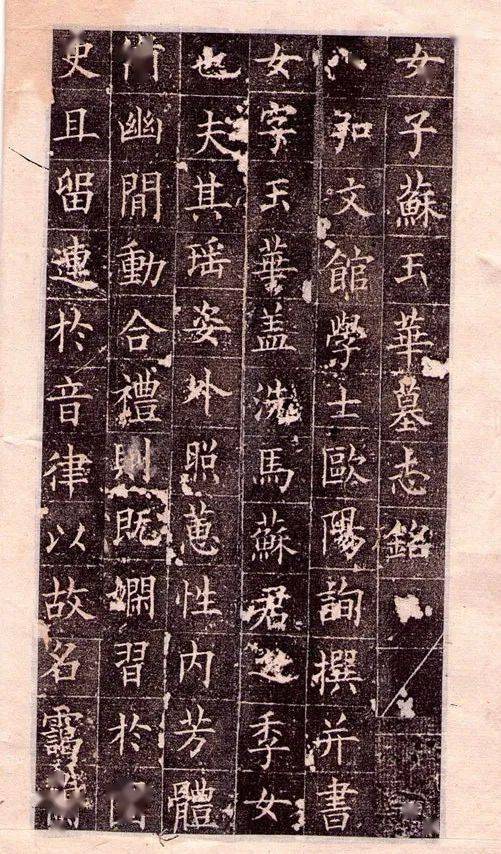 女子蘇玉華墓志銘
和文館學士歐陽詢撰并書
女字玉華盖洗馬蘇君之季女
也夫其瑶姿外照蕙性内芳體
幽閒動合禮則既嫻習於
史且留連於音律以故名靄